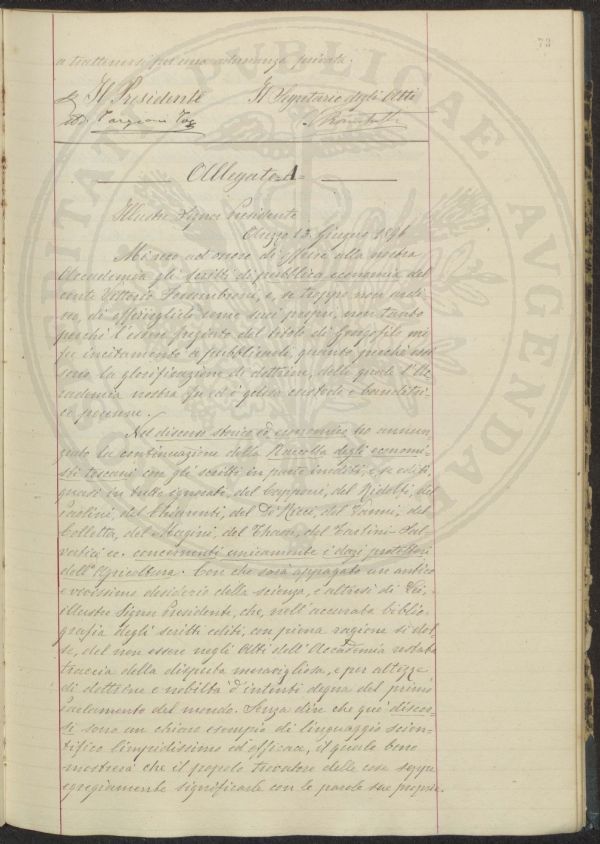 73
a trattenersi per una adunanza privata.
Il Presidente Il Segretario degli Atti
Targioni Toz
Allegato A
Illustre Signor Presidente
Arezzo 13 Giugno 1896
Mi reco ad onore di offrire alla nostra
Accademia gli scritti di pubblica economia del
conte Vittorio Fossombroni, e, se troppo non ardi-
sco, di offerirglieli come suoi proprj, non tanto
perchè l'essere fregiato del titolo di Georgofilo mi
fu incitamento a pubblicarli, quanto perchè essi
sono la glorificazione di dottrine, delle quali l'Ac
cademia nostra fu ed è gelosa custode e banditri-
ce perenne.
Nel discorso storico ed economico ho annun-
ziato la continuazione della Raccolta degli economi-
sti toscani con gli scritti in parte inediti, e se editi,
quasi in tutto ignorati, del Capponi, del Ridolfi, del
Paolini, del Chiarenti, del De Ricci, del Fanni, del
Colletta, del Magini, del Thaon, del Tartini-Sal-
vatici ec. concernenti unicamente i dazj protettori
dell'Agricoltura. Con che sarà appagato un antico
e vivissimo desiderio della scienza, e altresì di Lei,
illustre Signor Presidente, che, nell'accurata biblio-
grafia degli scritti editi, con piena ragione si dol-
se, del non essere negli Atti dell'Accademia restata
traccia della disputa meravigliosa, e per altezza
di dottrine e nobiltà d'intenti degna del primo
Parlamento del mondo. Senza dire che que' discor-
si sono un chiaro esempio di linguaggio scien-
tifico limpidissimo ed efficace, il quale bene
mostrerà che il popolo trovatore delle cose seppe
egregiamente significarle con le parole sue proprie.